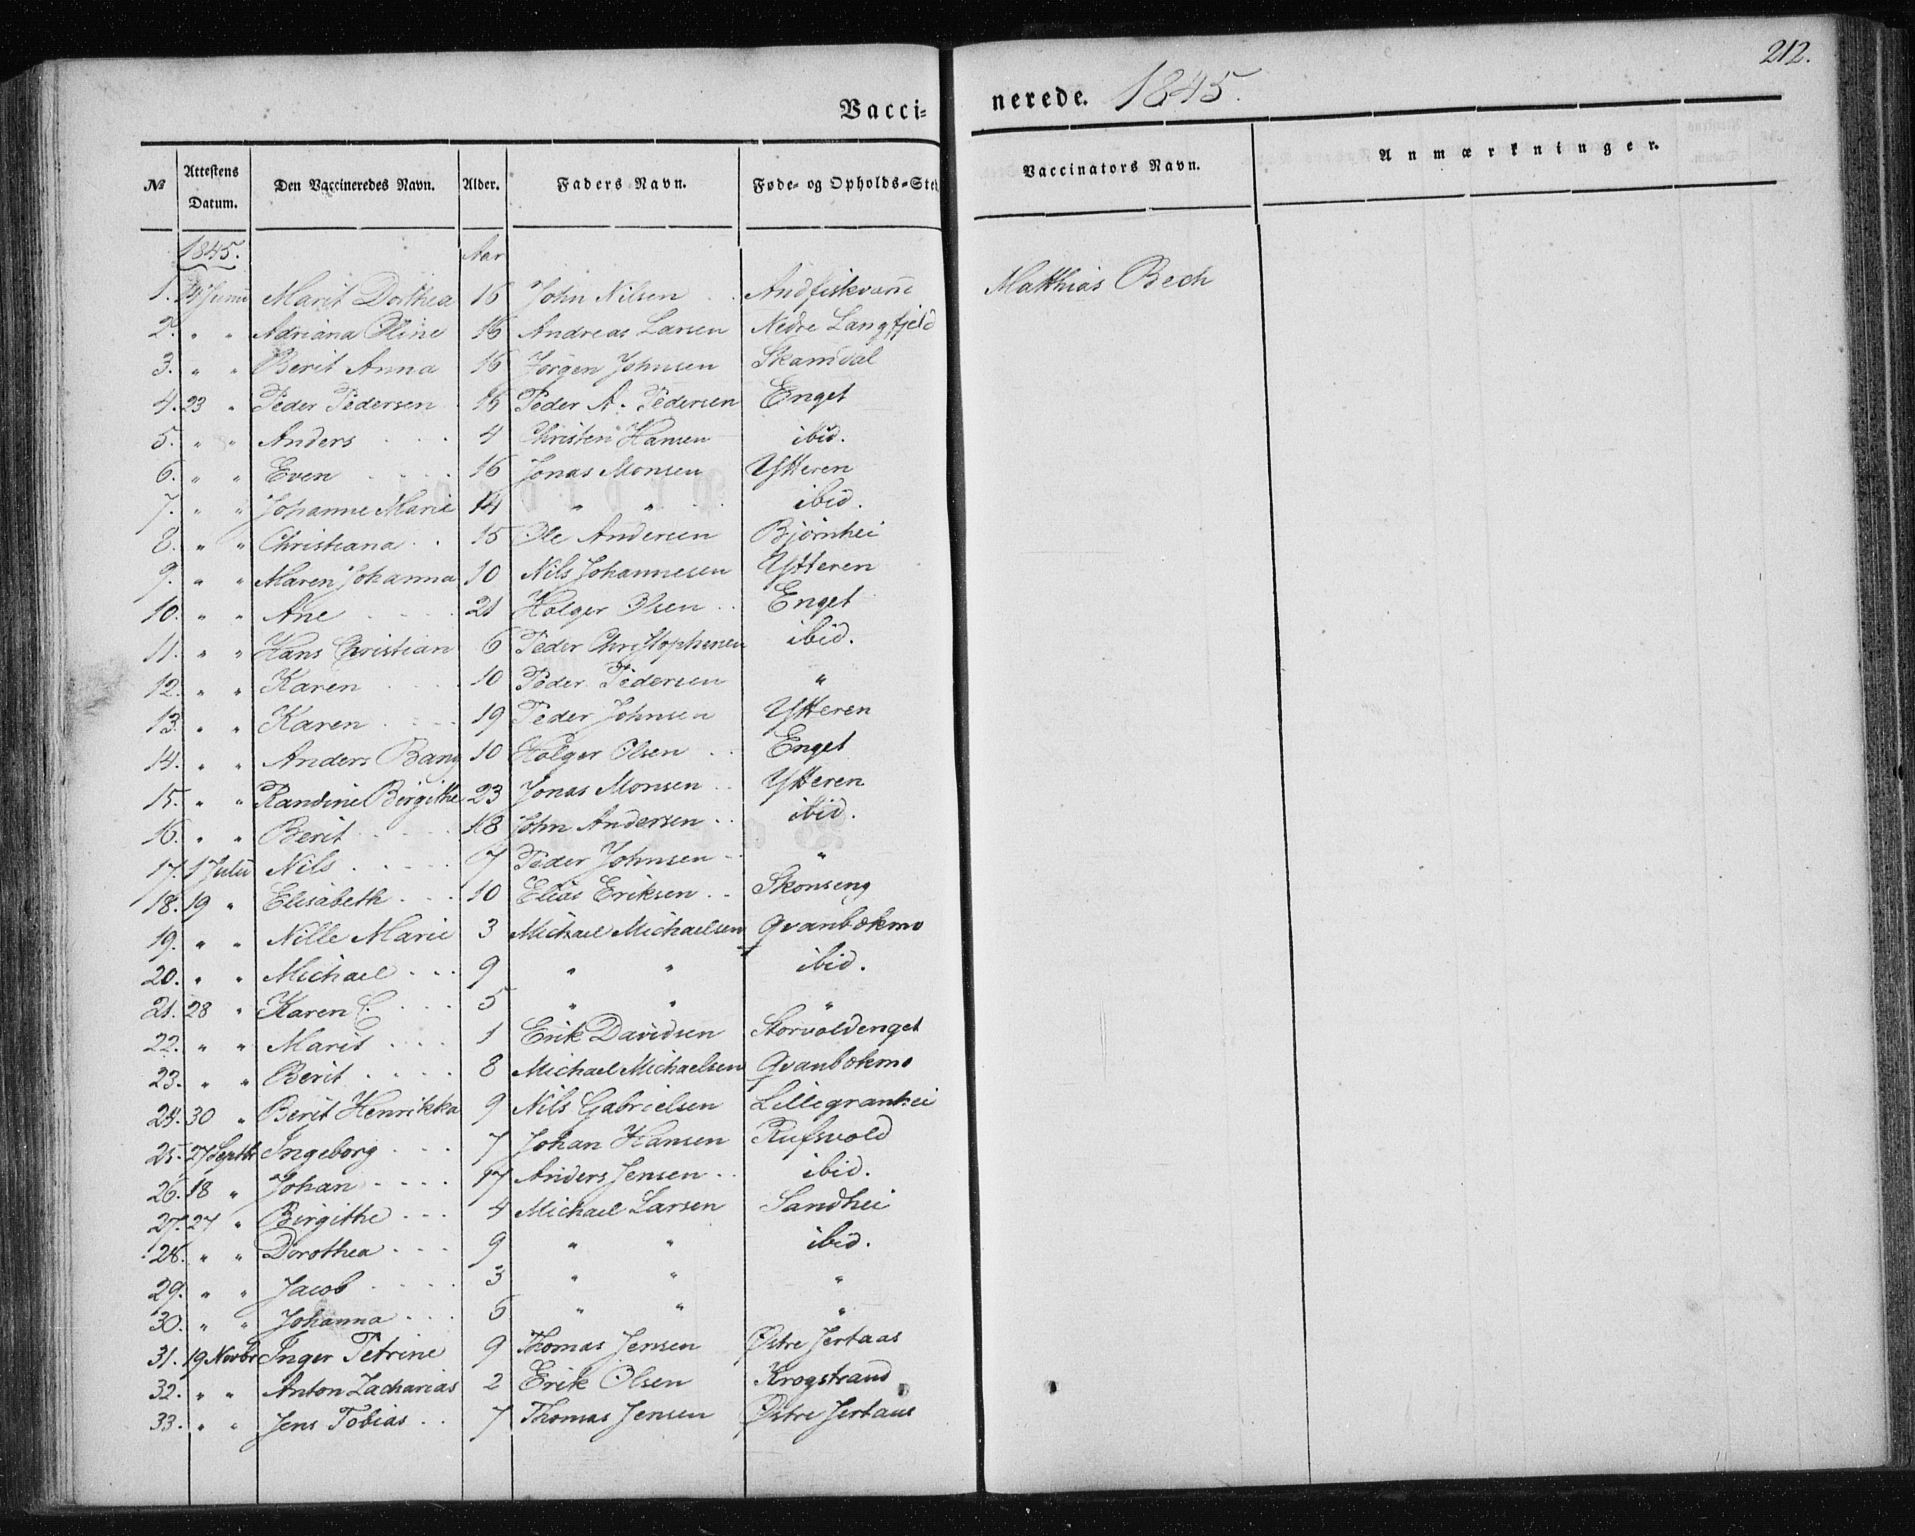 212.
Vacci- nerede. 1845.
№ Attestens Datum. Den Vaccineredes Navn. Alder. Faders Navn. Føde- og Opholds-Sted Vaccinators Navn. Anmærkninger.
1845. Aar
1. Juni Marit Dorthea 16 John Nilsen Andfiskvand Matthias Bech
2. " " Adriana Oline 16 Andreas Larsen Nedre Langfjeld
3. " " Berit Anna 16 Jörgen Johnsen Skamdal
4. 23 " Peder Pedersen 16 Peder A. Pedersen Enget
5. " " Anders 4 Christen Hansen ibid.
6. " " Even 16 Jonas Monsen Ytteren
7. " " Johanne Marie 14 " " ibid.
8. " " Christiana 15 Ole Andersen Bjørnhei
9. " " Maren Johanna 10 Nils Johannesen Ytteren
10. " " Ane 21 Holger Olsen Enget
11. " " Hans Christian 6 Peder Christophersen ibid.
12. " " Karen 10 Peder Pedersen "
13. " " Karen 19 Peder Johnsen Ytteren
14. " " Anders Bang 10 Holger Olsen Enget
15. " " Randine Birgithe 23 Jonas Monsen Ytteren
16. " " Berit 18 John Andersen ibid.
17. 1 Julii Nils 7 Peder Johnsen "
18. 19 " Elisabeth 10 Elias Eriksen Skonseng
19. " " Nille Marie 3 Michael Michaelsen Qvanbækmo
20. " " Michael 9 " " ibid.
21. 28 " Karen C. 5 " " "
22. " " Marit 1 Erik Davidsen Storvoldenget
23. " " Berit 8 Michael Michaelsen Qvanbækmo
24. 30 " Berit Henrikka 9 Nils Gabrielsen Lillegranhei
25. 27 Septbr Ingeborg 7 Johan Hansen Rufsvold
26. 18 " Johan 17 Anders Jensen ibid.
27. 27 " Birgithe 4 Michael Larsen Sandhei
28. " " Dorothea 9 " " ibid.
29. " " Jacob 3 " " "
30. " " Johanna 6 " " "
31. 19 Novbr Inger Petrine 9 Thomas Jensen Østre Jertaas
32. " " Anton Zacharias 2 Erik Olsen Krogstrand
33. " " Jens Tobias 7 Thomas Jensen Østre Jertaas